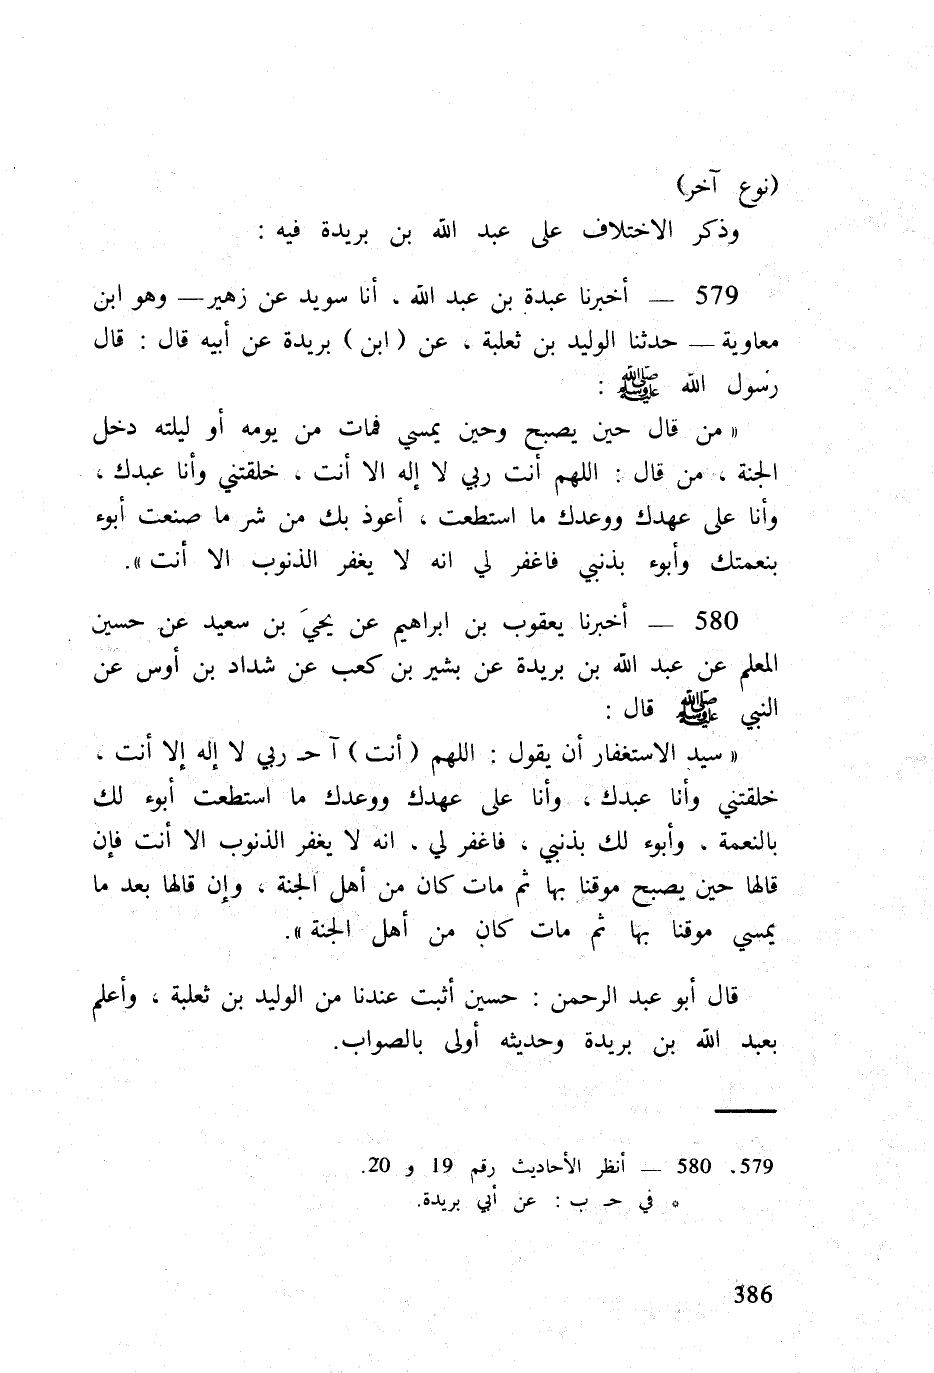 (نوع آخر)
وذكر الاختلاف على عبد الله بن بريدة فيه :
579 — أخبرنا عبدة بن عبد الله ، أنا سويد عن زهير — وهو ابن
معاوية — حدثنا الوليد بن ثعلبة ، عن ( ابن ) بريدة عن أبيه قال : قال
رسول الله ﷺ :
« من قال حين يصبح وحين يمسي فمات من يومه أو ليلته دخل
الجنة ، من قال : اللهم أنت ربي لا إله الا أنت ، خلقتني وأنا عبدك ،
وأنا على عهدك ووعدك ما استطعت ، أعوذ بك من شر ما صنعت أبوء
بنعمتك وأبوء بذنبي فاغفر لي انه لا يغفر الذنوب الا أنت ».
580 — أخبرنا يعقوب بن ابراهيم عن يحيَ بن سعيد عن حسين
المعلم عن عبد الله بن بريدة عن بشير بن كعب عن شداد بن أوس عن
النبي ﷺ قال :
« سيد الاستغفار أن يقول : اللهم ( أنت ) آ حـ ربي لا إله إلا أنت ،
خلقتني وأنا عبدك ، وأنا على عهدك ووعدك ما استطعت أبوء لك
بالنعمة ، وأبوء لك بذنبي ، فاغفر لي ، انه لا يغفر الذنوب الا أنت فإن
قالها حين يصبح موقنا بها ثم مات كان من أهل الجنة ، وإن قالها بعد ما
يمسي موقنا بها ثم مات كان من أهل الجنة ».
قال أبو عبد الرحمن : حسين أثبت عندنا من الوليد بن ثعلبة ، وأعلم
بعبد الله بن بريدة وحديثه أولى بالصواب.
579، 580 — أنظر الأحاديث رقم 19 و 20.
* في حـ ب : عن أبي بريدة.
386